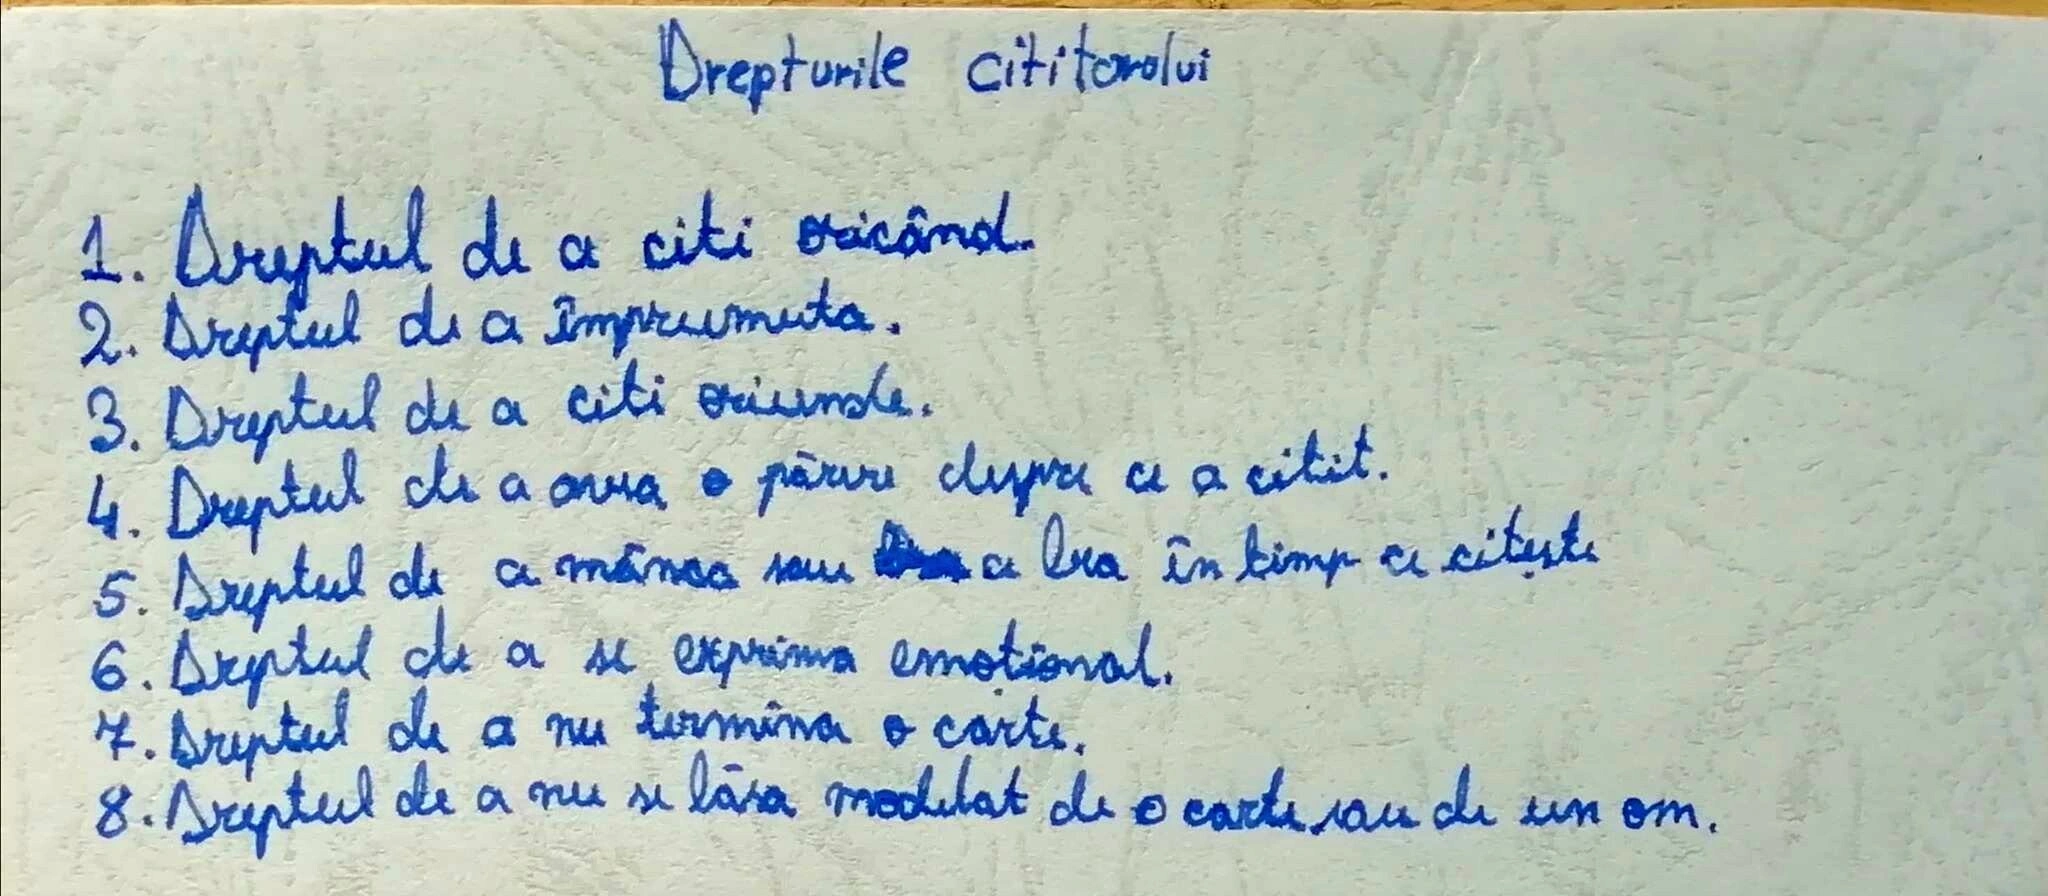 Drepturile cititorului
1. Dreptul de a citi oricând.
2. Dreptul de a împrumuta.
3. Dreptul de a citi oriunde.
4. Dreptul de a avea o părere despre ce a citit.
5. Dreptul de a mânca sau a bea în timp ce citește
6. Dreptul de a se exprima emoțional.
7. Dreptul de a nu termina o carte.
8. Dreptul de a nu se lăsa modelat de o carte sau de un om.